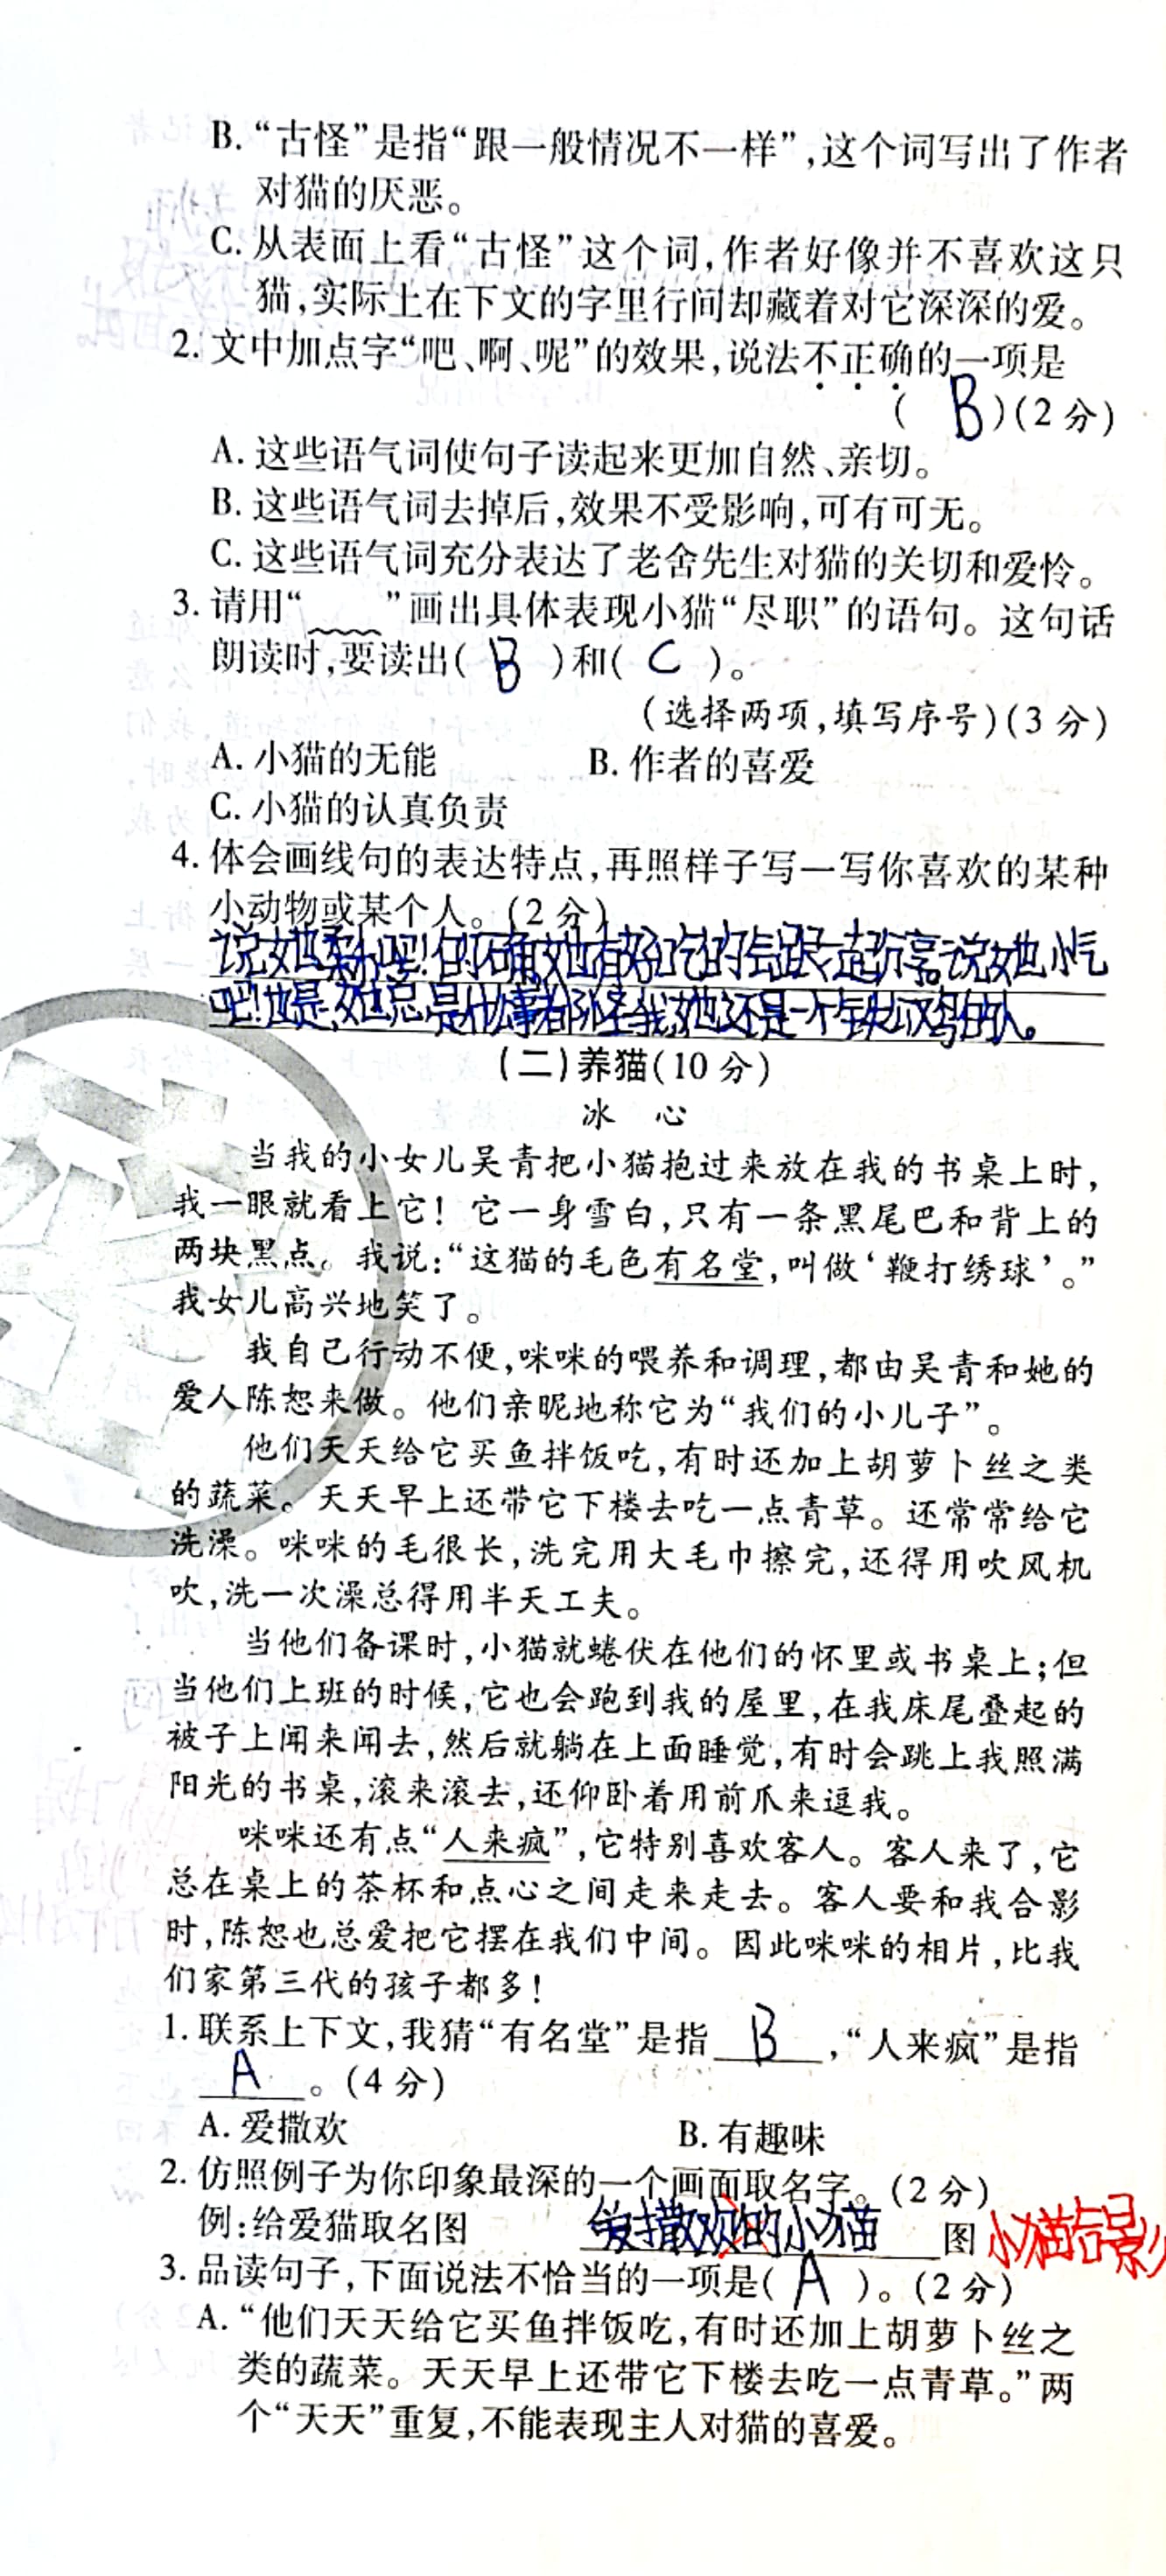 B.“古怪”是指“跟一般情况不一样”,这个词写出了作者
对猫的厌恶。
C.从表面上看“古怪”这个词,作者好像并不喜欢这只
猫,实际上在下文的字里行间却藏着对它深深的爱。
2.文中加点字“吧、啊、呢”的效果,说法不正确的一项是
( B )(2分)
A.这些语气词使句子读起来更加自然、亲切。
B.这些语气词去掉后,效果不受影响,可有可无。
C.这些语气词充分表达了老舍先生对猫的关切和爱怜。
3.请用“ ”画出具体表现小猫“尽职”的语句。这句话
朗读时,要读出( B )和( C )。
(选择两项,填写序号)(3分)
A.小猫的无能 B.作者的喜爱
C.小猫的认真负责
4.体会画线句的表达特点,再照样子写一写你喜欢的某种
小动物或某个人。(2分)
说她 吧!的确,她有好吃的会跟 一起分享。说她小气
吧!也是,她总是什么事都怪我,她还是一个 的人。
(二)养猫(10分)
冰 心
当我的小女儿吴青把小猫抱过来放在我的书桌上时,
我一眼就看上它!它一身雪白,只有一条黑尾巴和背上的
两块黑点。我说:“这猫的毛色有名堂,叫做‘鞭打绣球’。”
我女儿高兴地笑了。
我自己行动不便,咪咪的喂养和调理,都由吴青和她的
爱人陈恕来做。他们亲昵地称它为“我们的小儿子”。
他们天天给它买鱼拌饭吃,有时还加上胡萝卜丝之类
的蔬菜。天天早上还带它下楼去吃一点青草。还常常给它
洗澡。咪咪的毛很长,洗完用大毛巾擦完,还得用吹风机
吹,洗一次澡总得用半天工夫。
当他们备课时,小猫就蜷伏在他们的怀里或书桌上;但
当他们上班的时候,它也会跑到我的屋里,在我床尾叠起的
被子上闻来闻去,然后就躺在上面睡觉,有时会跳上我照满
阳光的书桌,滚来滚去,还仰卧着用前爪来逗我。
咪咪还有点“人来疯”,它特别喜欢客人。客人来了,它
总在桌上的茶杯和点心之间走来走去。客人要和我合影
时,陈恕也总爱把它摆在我们中间。因此咪咪的相片,比我
们家第三代的孩子都多!
1.联系上下文,我猜“有名堂”是指 B ,“人来疯”是指
A 。(4分)
A.爱撒欢 B.有趣味
2.仿照例子为你印象最深的一个画面取名字。(2分)
例:给爱猫取名图 爱撒欢的小猫 图 小猫合影
3.品读句子,下面说法不恰当的一项是( A )。(2分)
A.“他们天天给它买鱼拌饭吃,有时还加上胡萝卜丝之
类的蔬菜。天天早上还带它下楼去吃一点青草。”两
个“天天”重复,不能表现主人对猫的喜爱。